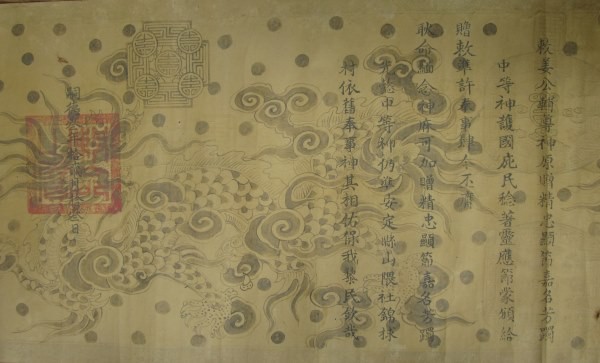 敕姜公輔尊神原贈精忠顯節嘉名芳躅
中等神護國庇民稔著靈應節蒙頒給
贈敕準許奉事肆今丕膺
耿命緬念神庥可加贈精忠顯節嘉名芳躅
中等神仍準安定縣山隈社錦
村依舊奉事神其相佑保我黎民欽哉
嗣德年拾月日